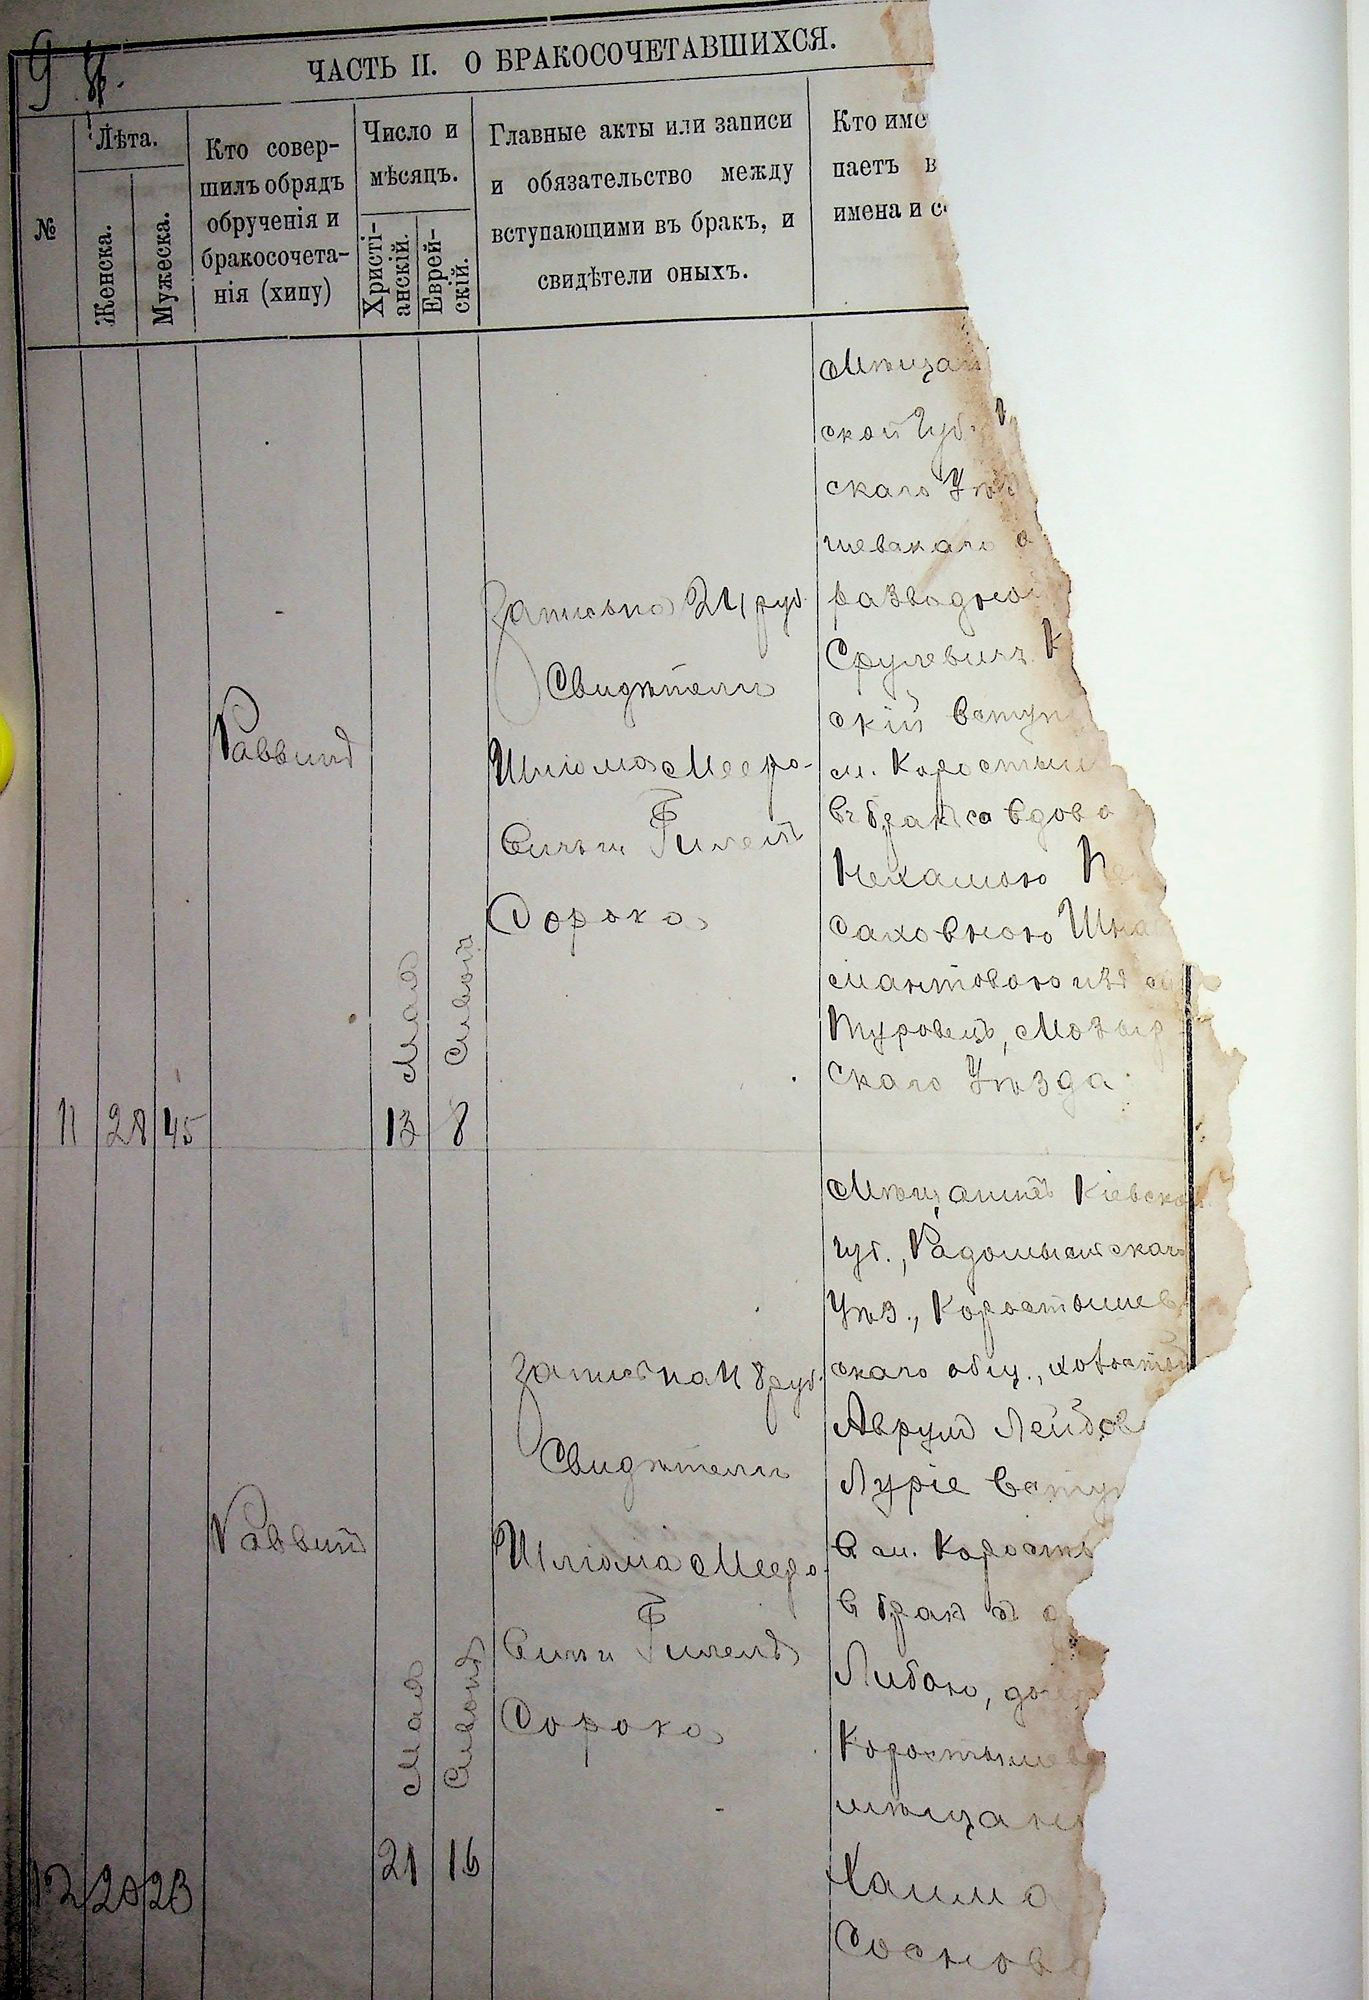 9
ЧАСТЬ II. О БРАКОСОЧЕТАВШИХСЯ.
№
Лѣта.
Женска.
Мужеска.
Кто совер-
шилъ обрядъ
обрученія и
бракосочета-
нія (хипу)
Число и
мѣсяцъ.
Христі-
анскій.
Еврей-
скій.
Главные акты или записи
и обязательство между
вступающими въ бракъ, и
свидѣтели оныхъ.
Кто име
паетъ в
имена и с
11
28
45
Раввинъ
13
Мая
8
Сивонъ
Запись на 24 руб.
Свидѣтели
Шліома Мееро-
вичъ и Гилелъ
Сорока
Мѣщан
ской Губ.
скаго Уѣз
шевскаго о
разводной
Срулевичъ К
скій вступ
м. Коростыш
въ бракъ со вдово
Нехамою Пе
саховною Шна
мантовою изъ м
Туровецъ, Мозыр
скаго Уѣзда.
12
20
23
Раввинъ
21
Мая
16
Сивонъ
Запись на 48 руб.
Свидѣтели
Шліома Мееро-
вичъ и Гилелъ
Сорока
Мѣщанинъ Кіевской
губ., Радомысльскаго
Уѣз., Коростышев
скаго общ., холостой
Аврумъ Лейбов
Луріе вступ
в м. Корость
в бракъ съ д
Либою, доче
Коростышев
мѣщани
Хаима
Соснов